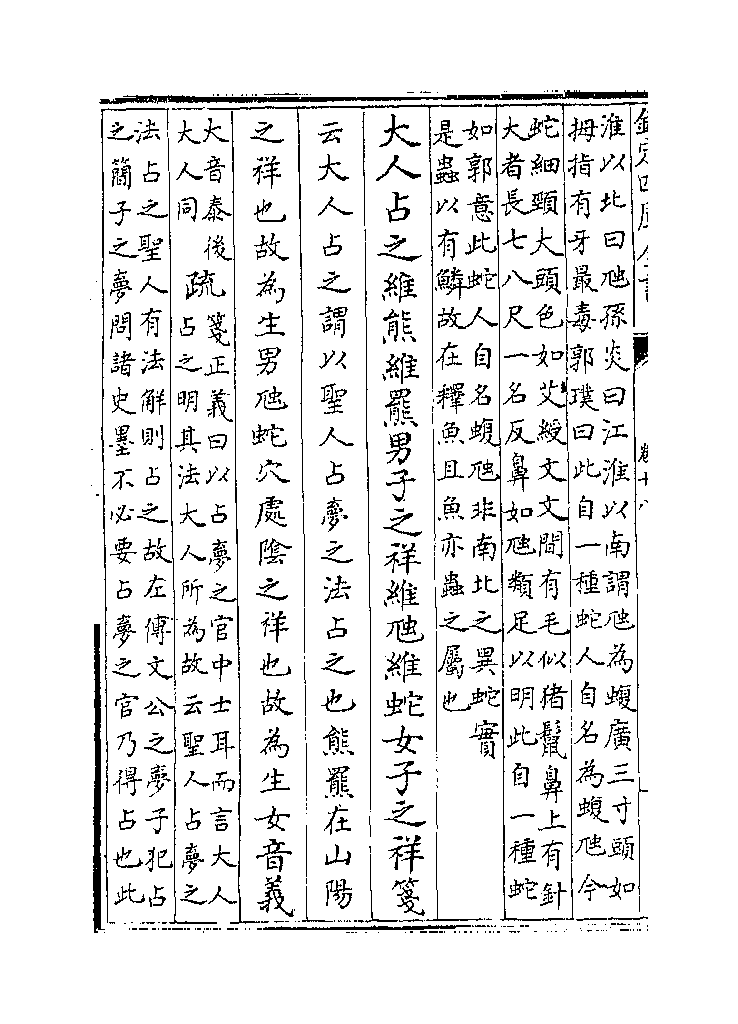 欽定四庫全書
卷十八
淮以北曰虺孫炎曰江淮以南謂虺為蝮廣三寸頭如
拇指有牙最毒郭璞曰此自一種蛇人自名為蝮虺今
蛇細頸大頭色如艾綬文文間有毛似猪鬛鼻上有針
大者長七八尺一名反鼻如虺類足以明此自一種蛇
如郭意此蛇人自名蝮虺非南北之異蛇實
是蟲以有鱗故在釋魚且魚亦蟲之屬也
大人占之維熊維羆男子之祥維虺維蛇女子之祥箋
云大人占之謂以聖人占夢之法占之也熊羆在山陽
之祥也故為生男虺蛇穴處陰之祥也故為生女音義
大音泰後
大人同
疏
箋正義曰以占夢之官中士耳而言大人
占之明其法大人所為故云聖人占夢之
法占之聖人有法解則占之故左傳文公之夢子犯占
之簡子之夢問諸史墨不必要占夢之官乃得占也此